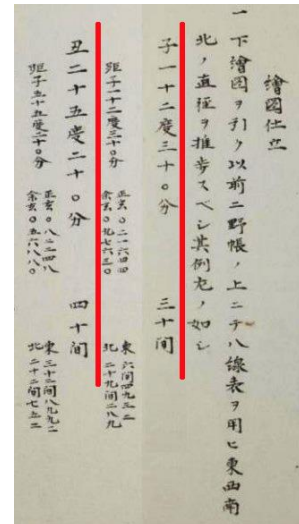 繪圖仕立
一下繪圖ヲ引ク以前ニ野帳ノ上ニテ八線表ヲ用ヒ東西南
北ノ直徑ヲ推歩スベシ其例左ノ如シ
子一十二度三十〇分 三十間
距子一十二度三十〇分
正玄〇二一六四四
余玄〇九七六三〇
東六間四九三二
北二十九間二八九
丑二十五度二十〇分 四十間
距子五十五度二十〇分
正玄〇八二二四八
余玄〇五六八八〇
東三十二間八九九二
北二十二間七五二